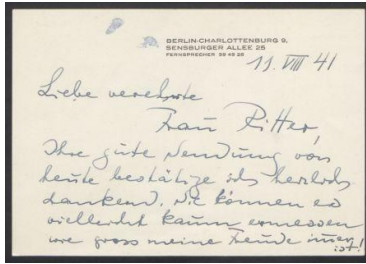 BERLIN-CHARLOTTENBURG 9,
SENSBURGER ALLEE 25
FERNSPRECHER 99 49 25
11. VIII 41
Liebe verehrte
Frau Ritter,
Ihre gute Sendung von
heute bestätige ich herzlich
dankend. Sie können es
vielleicht kaum ermessen
wie gross meine Freude
ist!